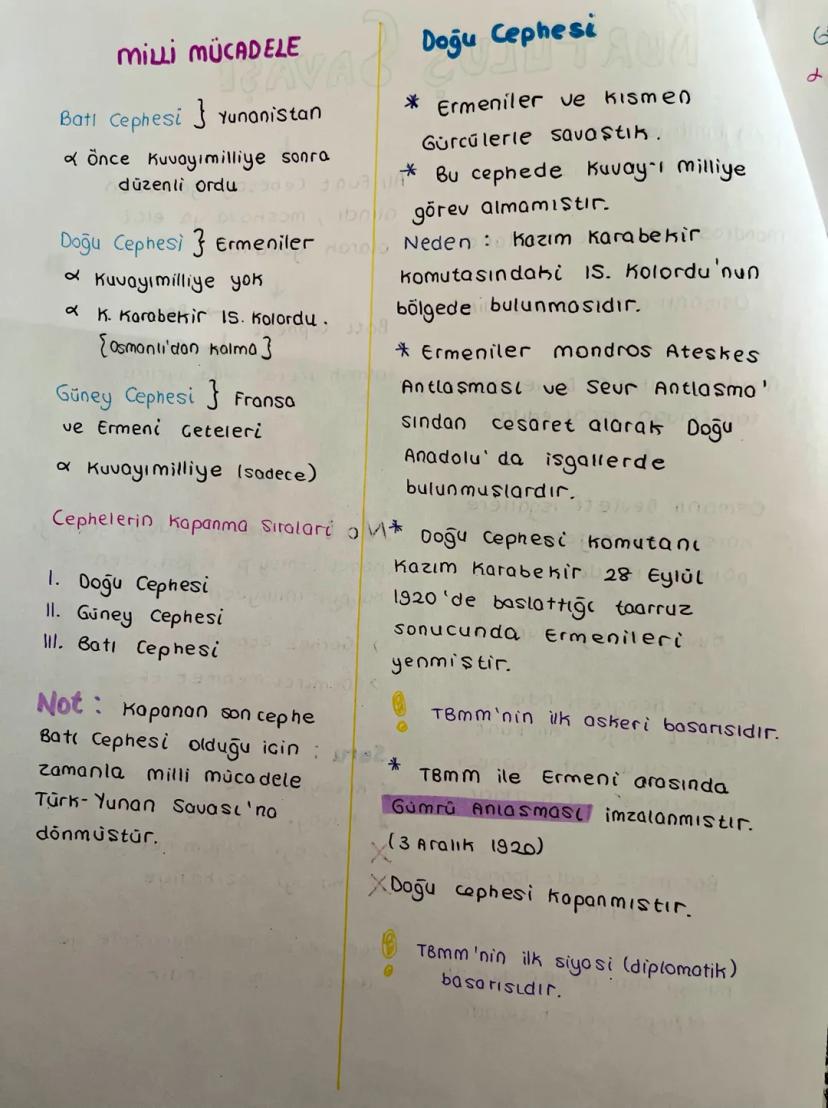 MİLLİ MÜCADELE
Batı Cephesi } Yunanistan
α Önce Kuvayımilliye sonra
düzenli ordu
Doğu Cephesi } Ermeniler
α Kuvayımilliye yok
α K. Karabekir 15. Kolordu.
{Osmanlı'dan kalma}
Güney Cephesi } Fransa
ve Ermeni çeteleri
α Kuvayımilliye (sadece)
Cephelerin Kapanma Sıraları
I. Doğu Cephesi
II. Güney Cephesi
III. Batı Cephesi
Not: Kapanan son cephe
Batı Cephesi olduğu için :
zamanla milli mücadele
Türk-Yunan Savaşı'na
dönmüştür.
Doğu Cephesi
* Ermeniler ve kısmen
Gürcülerle savaştık.
* Bu cephede Kuvay-ı milliye
görev almamıştır.
Neden : Kazım Karabekir
komutasındaki 15. Kolordu'nun
bölgede bulunmasıdır.
* Ermeniler mondros Ateşkes
Antlaşması ve Sevr Antlaşma'
sından cesaret alarak Doğu
Anadolu'da işgallerde
bulunmuşlardır.
* Doğu Cephesi komutanı
Kazım Karabekir 28 Eylül
1920'de başlattığı taarruz
sonucunda Ermenileri
yenmiştir.
! TBMM'nin ilk askeri başarısıdır.
* TBMM ile Ermeni arasında
Gümrü Anlaşması imzalanmıştır.
(3 Aralık 1920)
X Doğu cephesi kapanmıştır.
! TBMM'nin ilk siyasi (diplomatik)
başarısıdır.